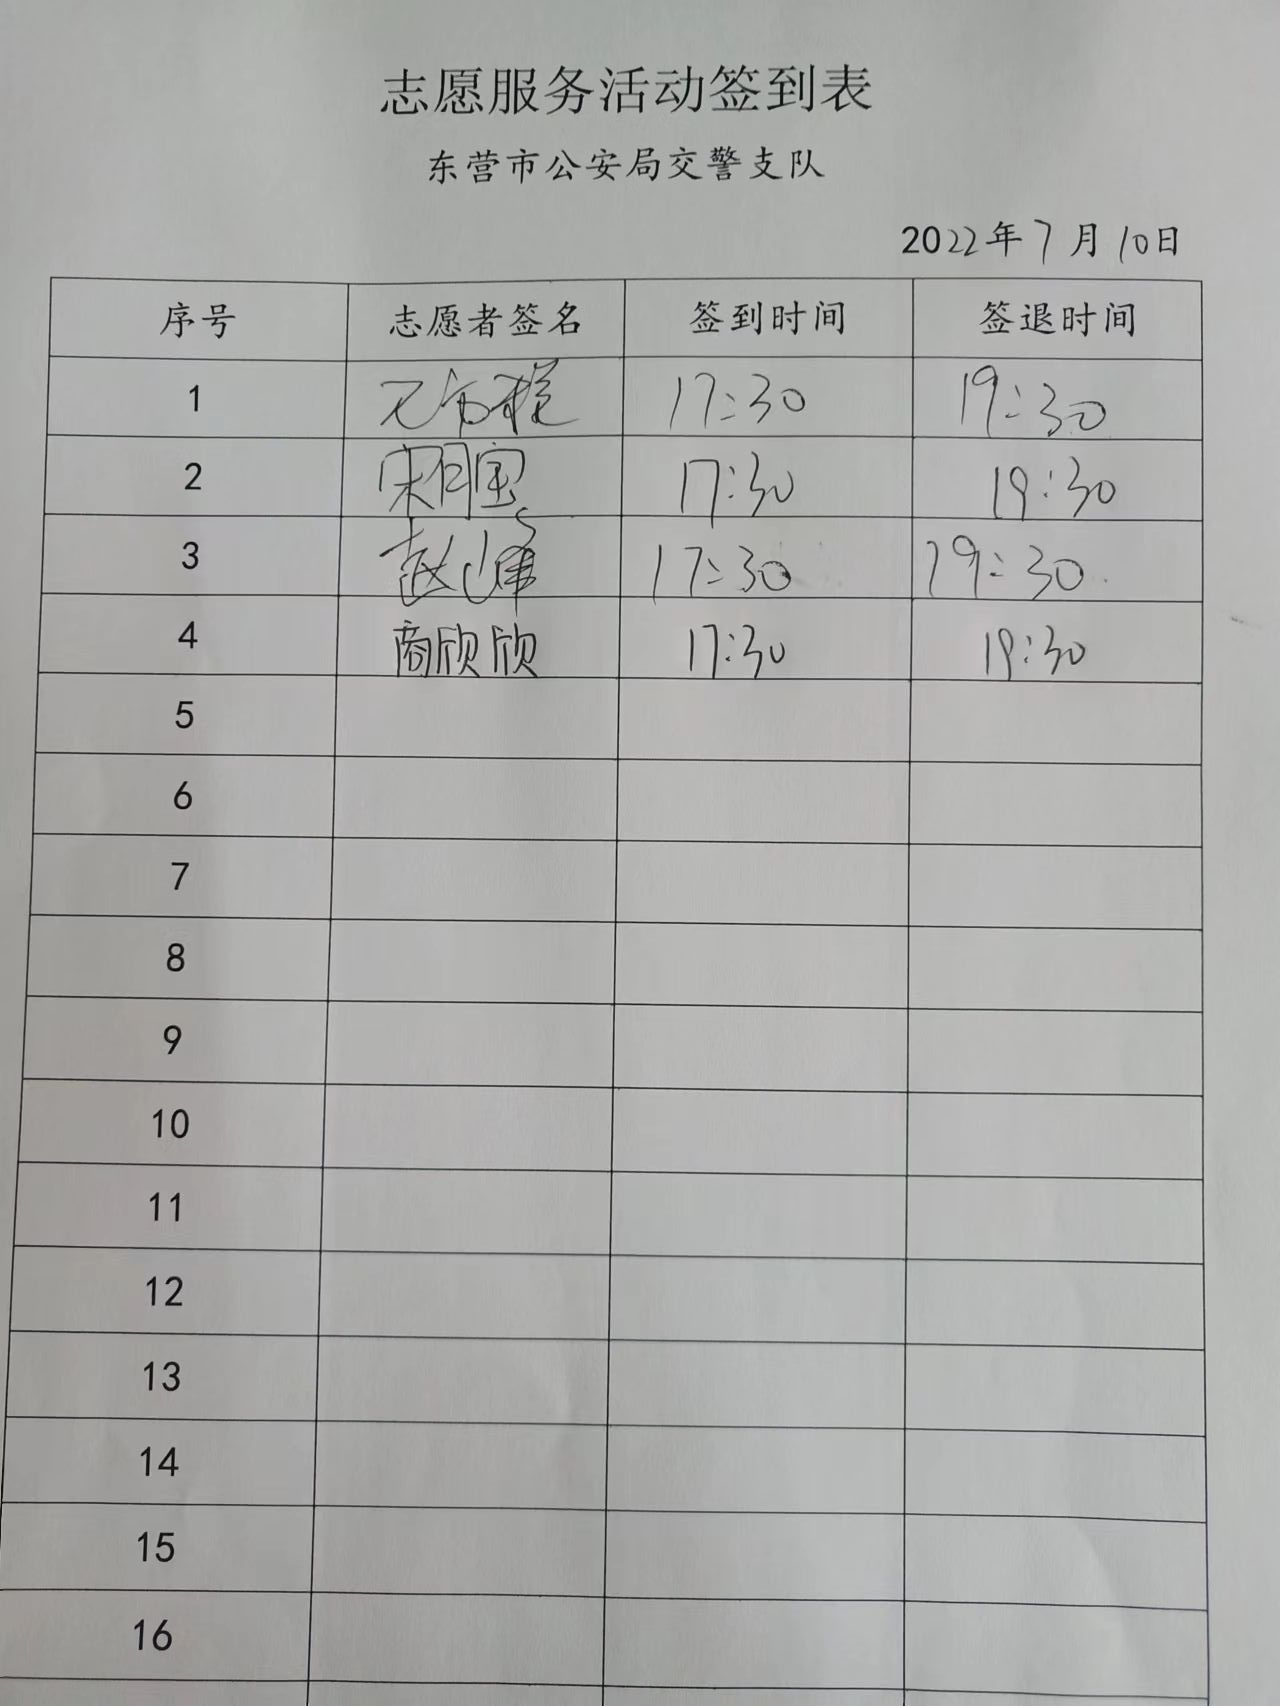 志愿服务活动签到表
东营市公安局交警支队
2022年7月10日
序号 志愿者签名 签到时间 签退时间
1 17:30 19:30
2 宋月宝 17:30 19:30
3 赵峰 17:30 19:30
4 商欣欣 17:30 19:30
5
6
7
8
9
10
11
12
13
14
15
16